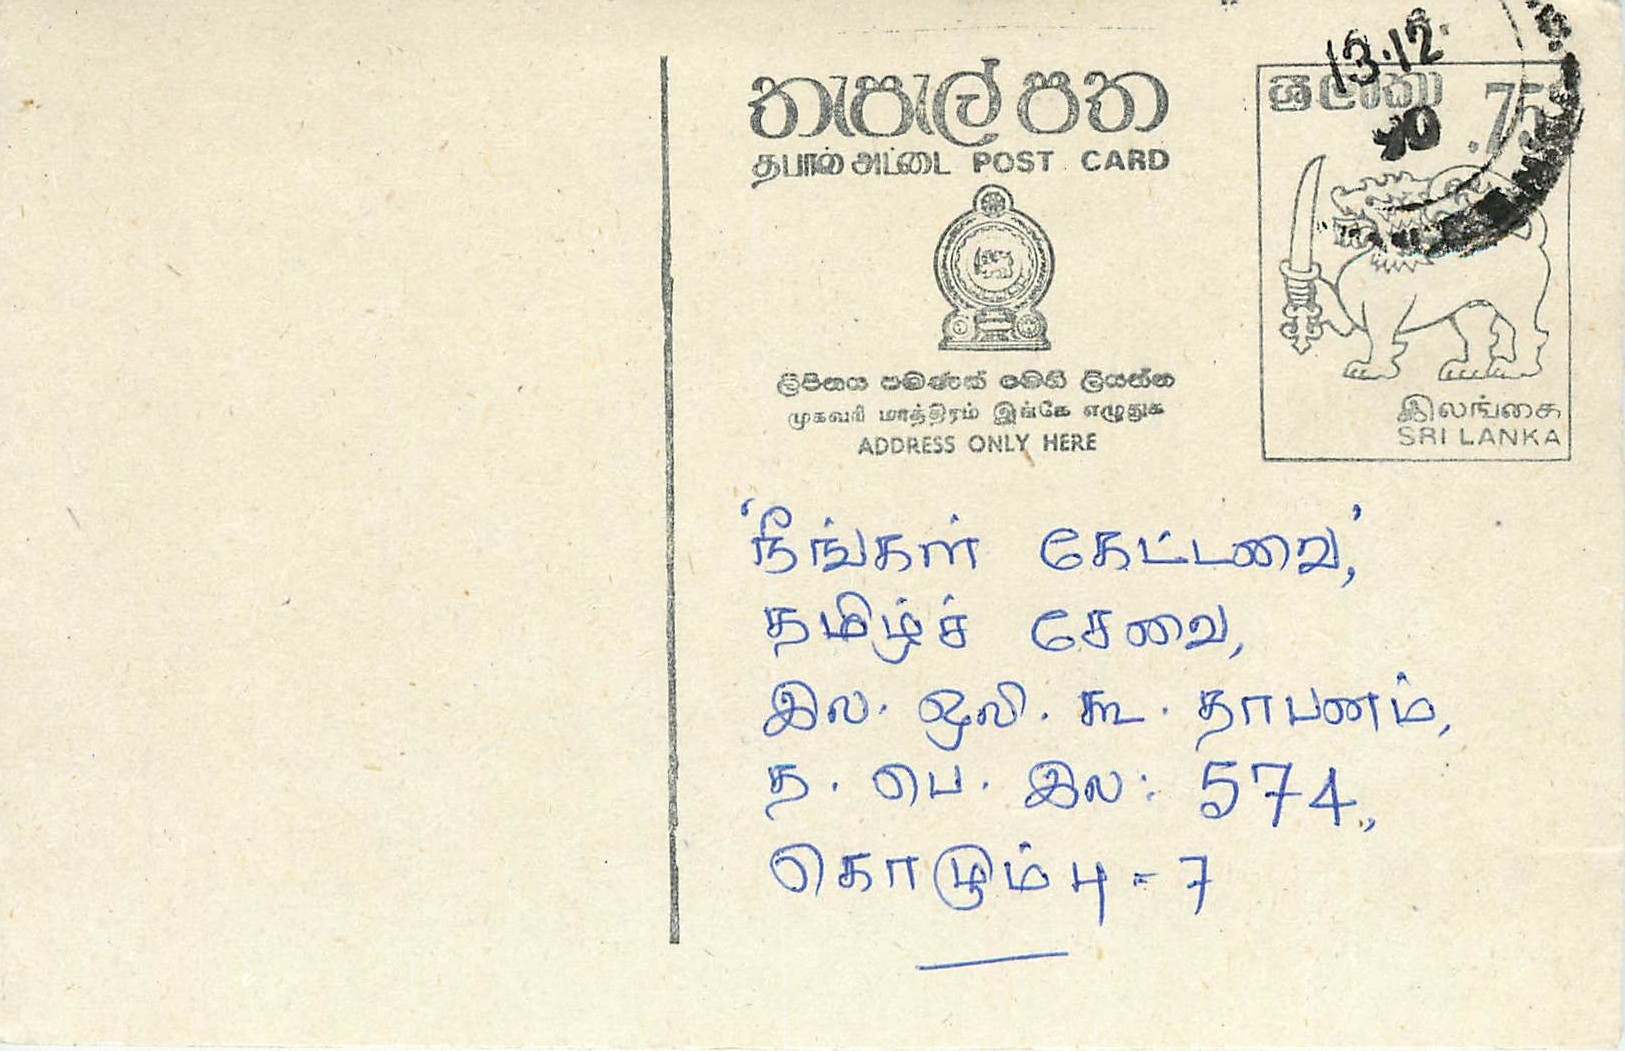 තැපැල් පත
தபால் அட்டை POST CARD
ලිපිනය පමණක් මෙහි ලියන්න
முகவரி மாத்திரம் இங்கே எழுதுக
ADDRESS ONLY HERE
ශ්‍රී ලංකා .75
13.12
90
இலங்கை
SRI LANKA
'நீங்கள் கேட்டவை',
தமிழ்ச் சேவை,
இல. ஒலி. கூ. தாபனம்,
த. பெ. இல: 574,,
கொழும்பு - 7